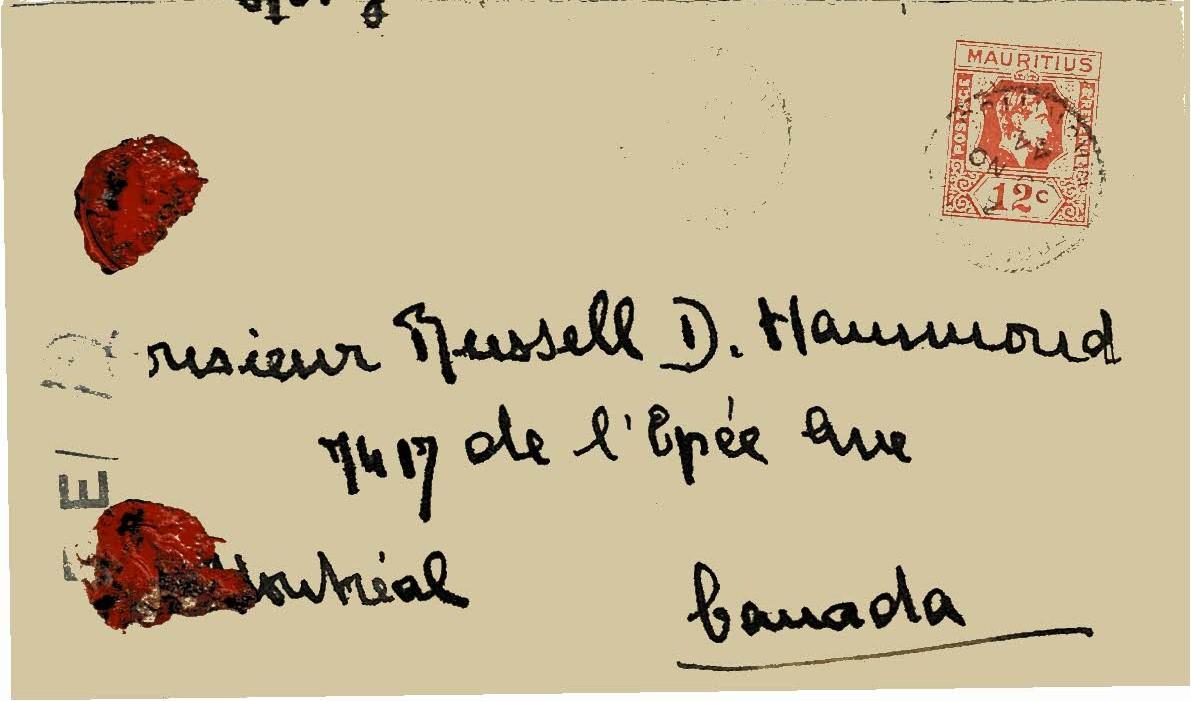 MAURITIUS
POSTAGE
12c
nsieur Russell D. Hammond
7417 de l'Epée Ave
Montréal
Canada